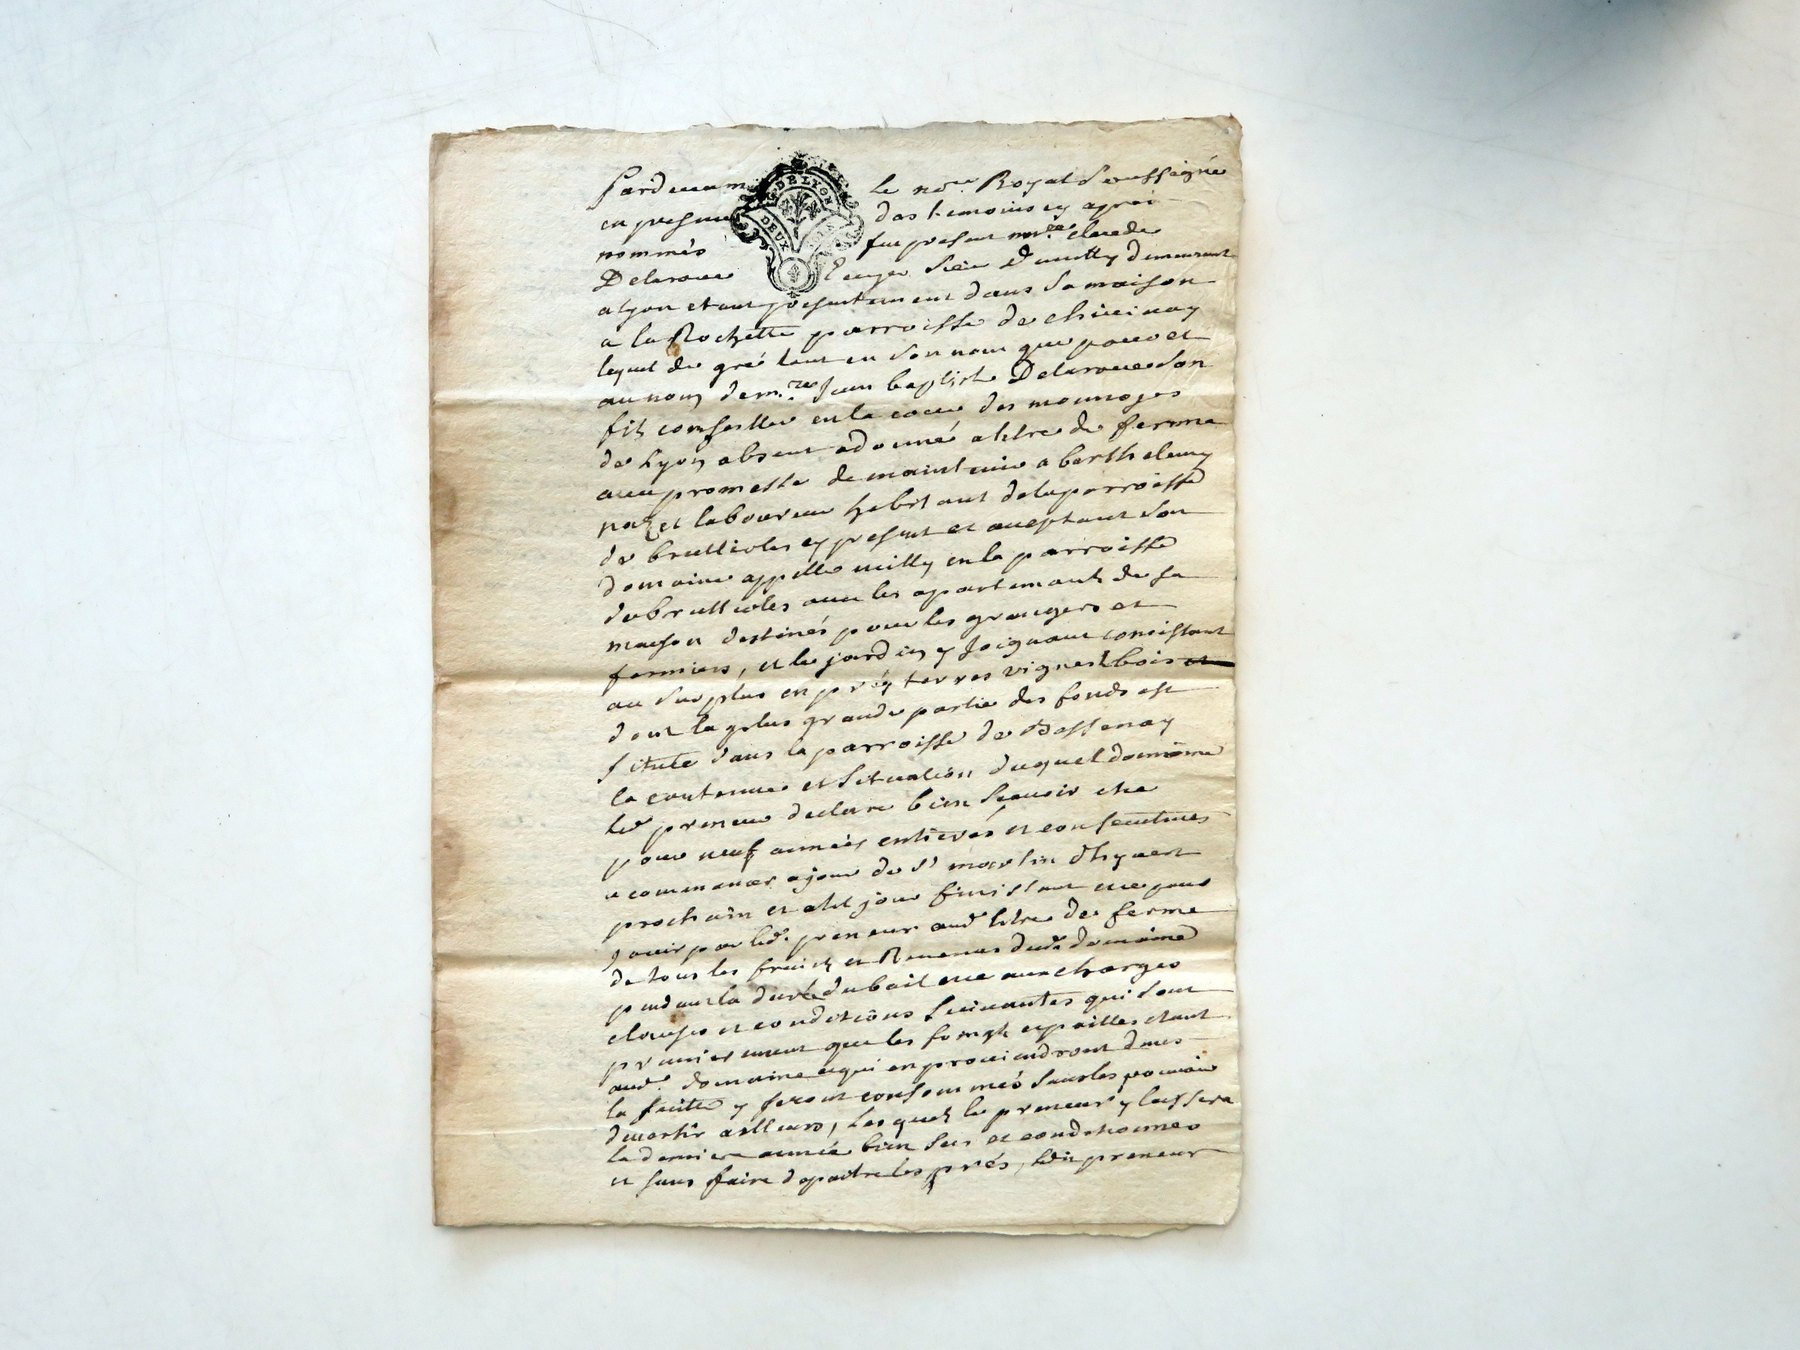 Pardevant le no.re Royal Soussigné
DE LYON
DEUX
en presence des temoins cy aprés
nommés fut present m.re claude
Delaroue Ecuyer Sieur demeurant
a lyon etant presentement dans Sa maison
a la Rochette parroisse de chivinay
lequel de gré tant en Son nom que pour et
au nom dem.re Jean baptiste Delaroue Son
fils conseiller en la cour des monnoyes
de Lyon absent a donné a titre de ferme
avec promesse de maintenir a barthelemy
laboureur habitant delaparroisse
de brullioles cy present et acceptant Son
domaine appellé milly en la parroisse
de brullioles avec les apartements de sa
maison destinés pour les grangers et
fermiers, et le jardin y Joignant consistant
au Surplus en prés terres vignes bois
dont la plus grande partie des fonds est
située dans la parroisse de Bessenay
la contenue et Situation duquel domaine
led. preneur declare bien Sçavoir ce
pour neuf années entieres et consecutives
a commancer a jour de S.t martin d'hyvert
prochain et atel jour finissant et pour
Jouir par led. preneur aud. titre de ferme
de tous les fruits et Revenus dud. domaine
pendant la durée du bail aux charges
clauses et conditions Suivantes qui Sont
premierement que les et pailles etant
aud. domaine et qui en proviendront dans
la Suitte y seront consommés Sans les pouvoir
divertir ailleurs, Lesquels le preneur y laissera
la derniere année bien Secs et conditionnes
et sans faire depaitre les prés, preneur